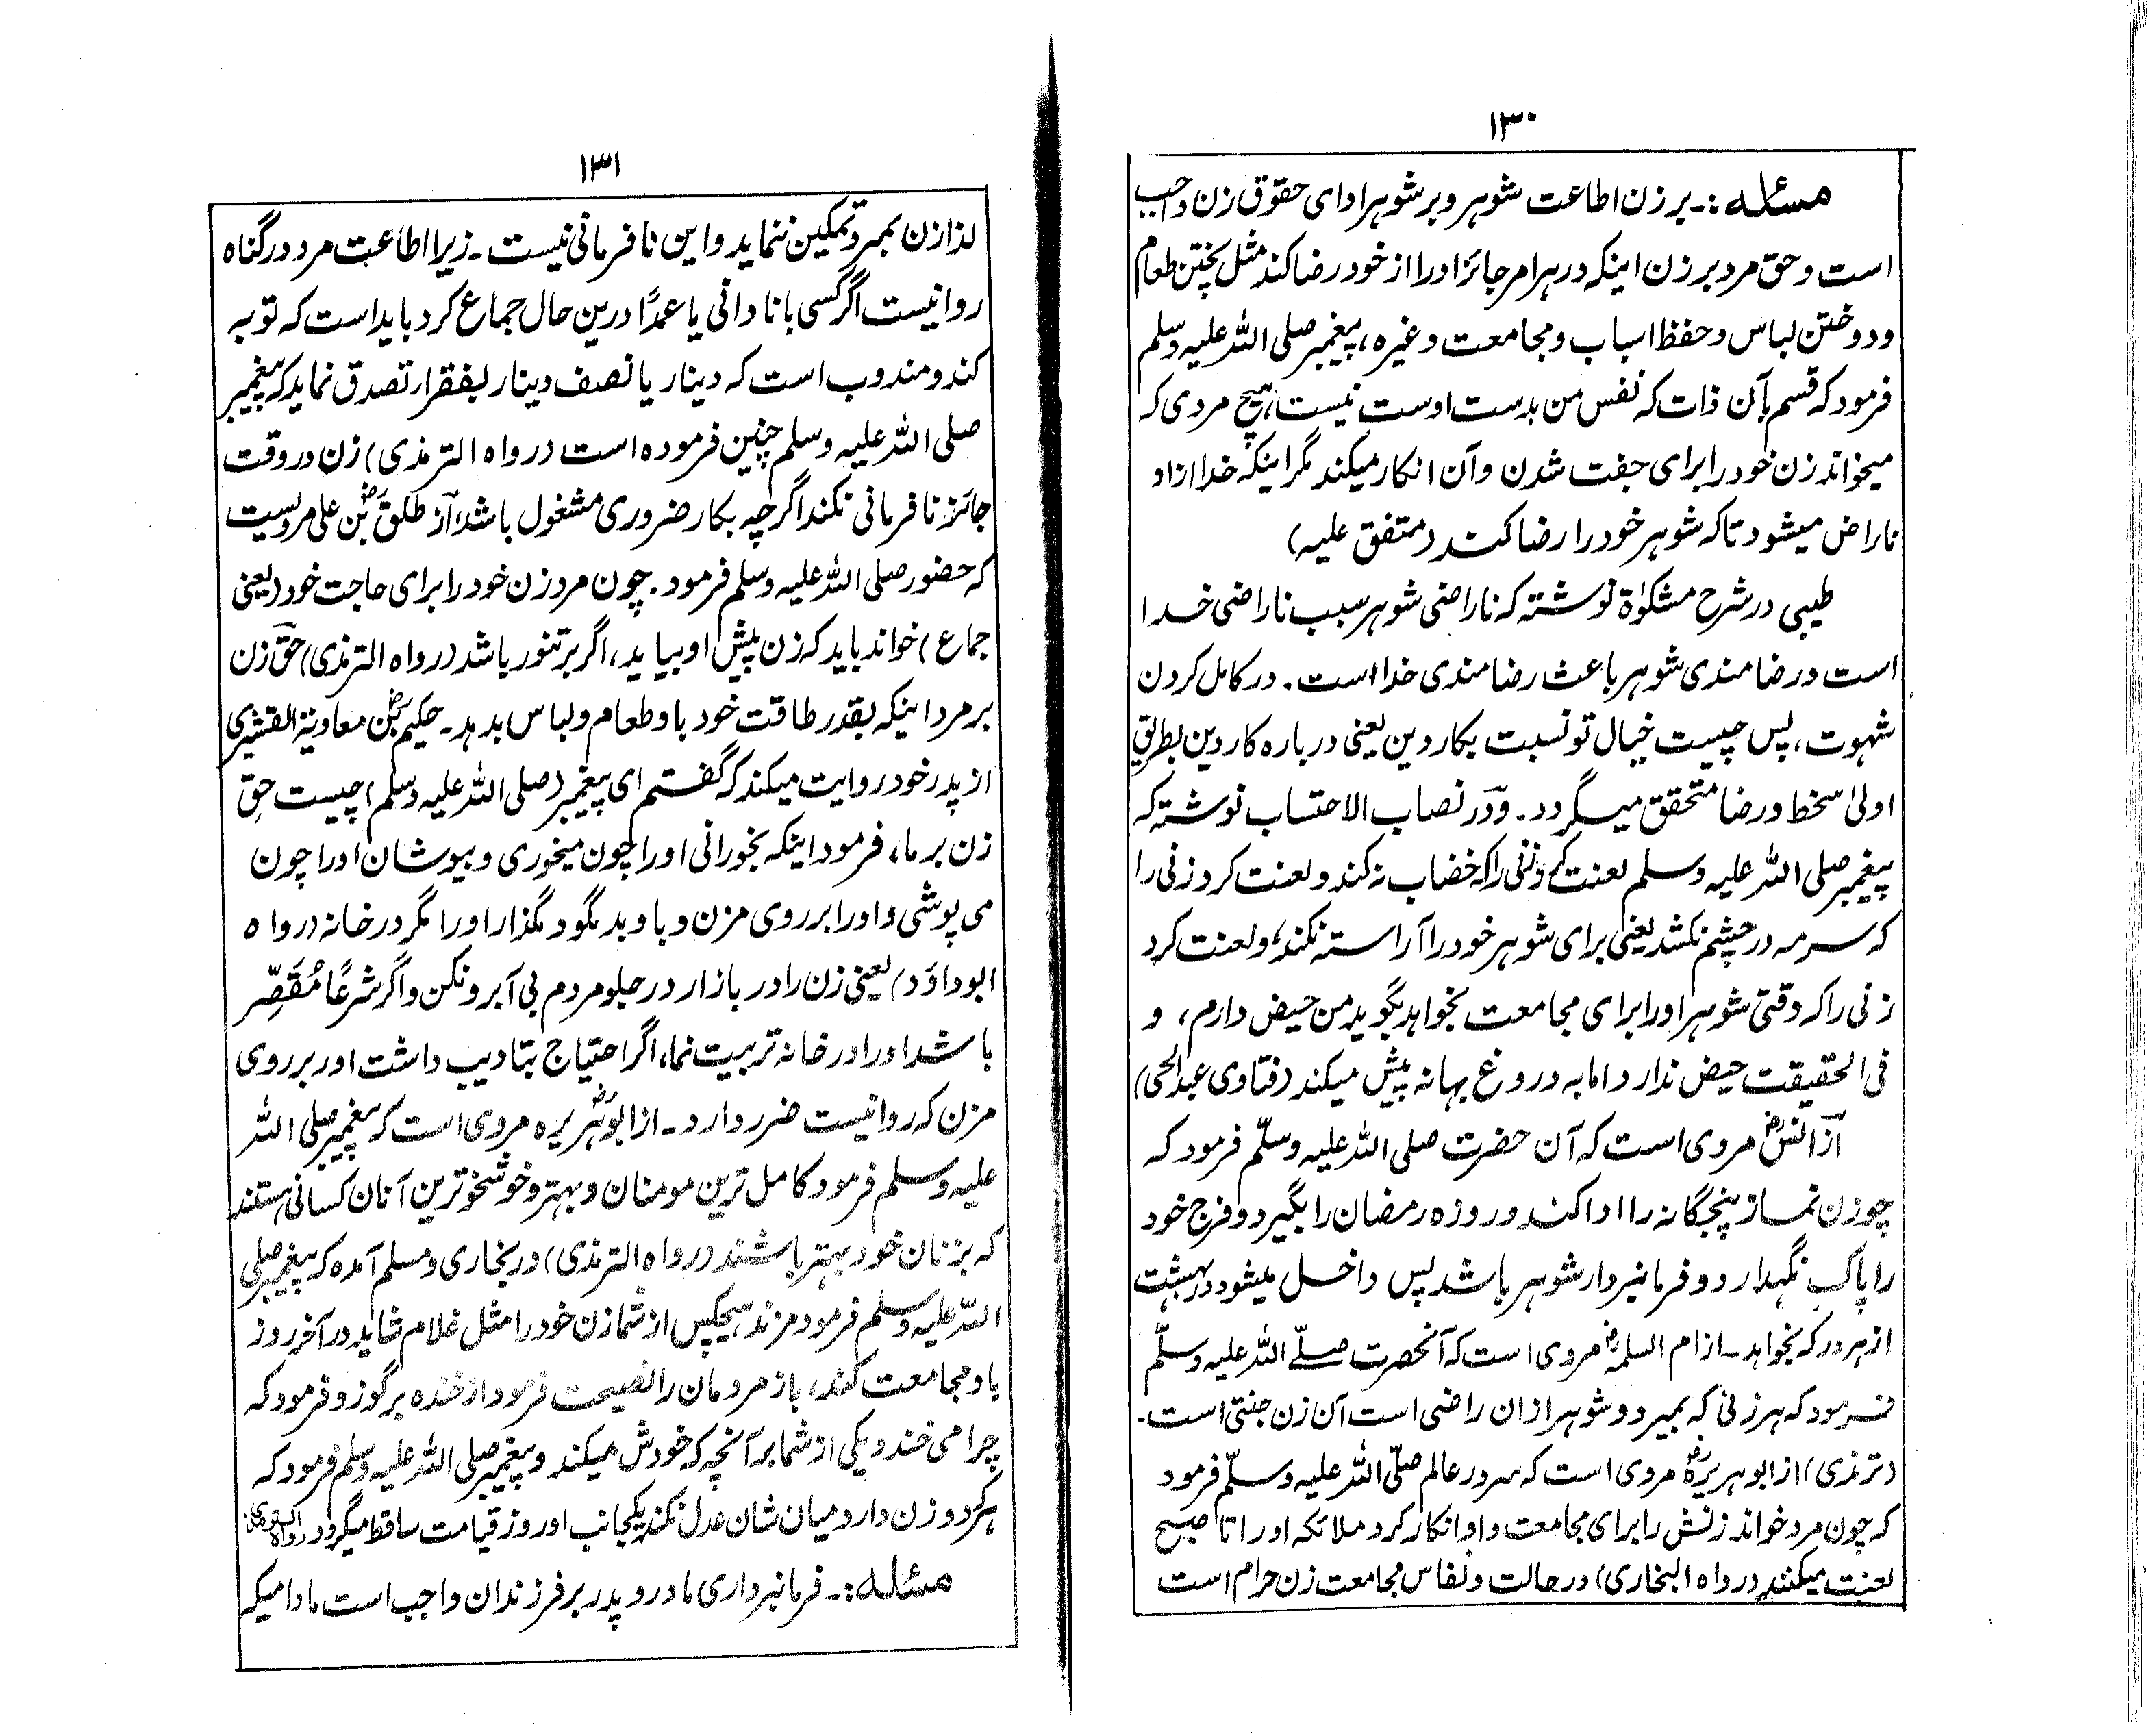 ۱۳۰
مسئله :ـ بر زن اطاعت شوهر و بر شوهر ادای حقوق زن واجب
است و حق مرد بر زن اینکه در هر امر جائز او را از خود رضا کند مثل پختن طعام
و دوختن لباس و حفظ اسباب و مجامعت و غیره، پیغمبر صلی الله علیه وسلم
فرمود که قسم بآن ذات که نفس من بدست اوست نیست، هیچ مردی که
میخواند زن خود را برای جفت شدن و آن انکار میکند مگر اینکه خدا از او
ناراض میشود تا که شوهر خود را رضا کند (متفق علیه)
طیبی در شرح مشکوٰة نوشته که ناراضی شوهر سبب ناراضی خدا
است و رضامندی شوهر باعث رضامندی خدا است. در کامل کردن
شهوت، پس چیست خیال تو نسبت بکار دین یعنی درباره کار دین بطریق
اولیٰ سخط و رضا متحقق میگردد. و در نصاب الاحتساب نوشته که
پیغمبر صلی الله علیه وسلم لعنت کرد زنی را که خضاب نه کند و لعنت کرد زنی را
که سرمه در چشم نکشد یعنی برای شوهر خود را آراسته نکند، و لعنت کرد
زنی را که وقتی شوهر او را برای مجامعت بخواهد بگوید من حیض دارم، و
فی الحقیقت حیض ندارد اما به دروغ بهانه پیش میکند (فتاوی عبدالحی)
از انسؓ مروی است که آن حضرت صلی الله علیه وسلّم فرمود که
چو زن نماز پنجگانه را ادا کند و روزه رمضان را بگیرد و فرج خود
را پاک نگهدارد و فرمانبردار شوهر باشد پس داخل میشود در بهشت
از هر در که بخواهد ـ از ام السلمهؓ مروی است که آنحضرت صلّے الله علیه وسلّم
فرمود که هر زنی که بمیرد و شوهر ازان راضی است آن زن جنتی است.
(ترمذی) از ابوهریرهؓ مروی است که سرور عالم صلّی الله علیه وسلّم فرمود
که چون مرد خواند زنش را برای مجامعت و او انکار کرد ملائکه او را تا صبح
لعنت میکنند (رواه البخاری) در حالت و نفاس مجامعت زن حرام است
۱۳۱
لذا زن بمرد تمکین ننماید و این نافرمانی نیست ـ زیرا اطاعت مرد در گناه
روا نیست اگر کسی با نادانی یا عمدًا درین حال جماع کرد باید است که توبه
کند و مندوب است که دینار یا نصف دینار بفقراء تصدق نماید که پیغمبر
صلی الله علیه وسلم چنین فرموده است (رواه الترمذی) زن در وقت
جائز نافرمانی نکند اگر چه بکار ضروری مشغول باشد، از طلقؓ بن علی مرویست
که حضور صلی الله علیه وسلم فرمود. چون مرد زن خود را برای حاجت خود (یعنی
جماع) خواند باید که زن پیش او بیاید، اگر بر تنور باشد (رواه الترمذی) حق زن
بر مرد اینکه بقدر طاقت خود باو طعام و لباس بدهد ـ حکیمؓ بن معاویة القشیری
از پدر خود روایت میکند که گفتم ای پیغمبر (صلی الله علیه وسلم) چیست حق
زن بر ما، فرمود اینکه بخورانی او را چون میخوری و بپوشان او را چون
می پوشی و او را بر روی مزن و باو بد مگو و مگذار او را مگر در خانه (رواه
ابوداؤد) یعنی زن را در بازار در جلو مردم بی آبرو نکن و اگر شرعًا مُقَصِّر
باشد او را در خانه تربیت نما، اگر احتیاج بتادیب داشت او ر بر روی
مزن که روا نیست ضرر دارد ـ از ابوهریرهؓ مروی است که پیغمبر صلی الله
علیه وسلم فرمود کامل ترین مومنان و بهتر و خوشخوترین آنان کسانی هستند
که بزنان خود بهتر باشند (رواه الترمذی) در بخاری و مسلم آمده که پیغمبر صلی
الله علیه وسلم فرمود مزند هیچکس از شما زن خود را مثل غلام شاید در آخر روز
باو مجامعت کند، باز مردمان را نصیحت فرمود از خنده بر گوز و فرمود که
چرا می خندد یکی از شما بر آنچه که خودش میکند و پیغمبر صلی الله علیه وسلم فرمود که
هر کرا دو زن دارد میان شان عدل نکند یکجانب او روز قیامت ساقط میگردد رواه الترمذی
مسئله :ـ فرمانبرداری مادر و پدر بر فرزندان واجب است مادامیکه